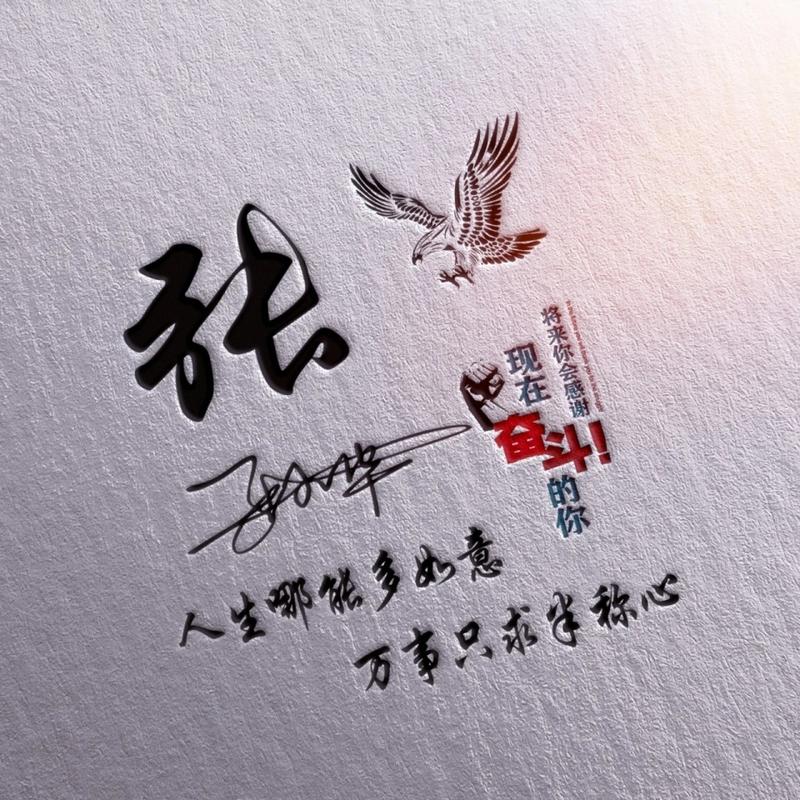 张
人生哪能多如意
万事只求半称心
将来你会感谢
现在
奋斗
的你